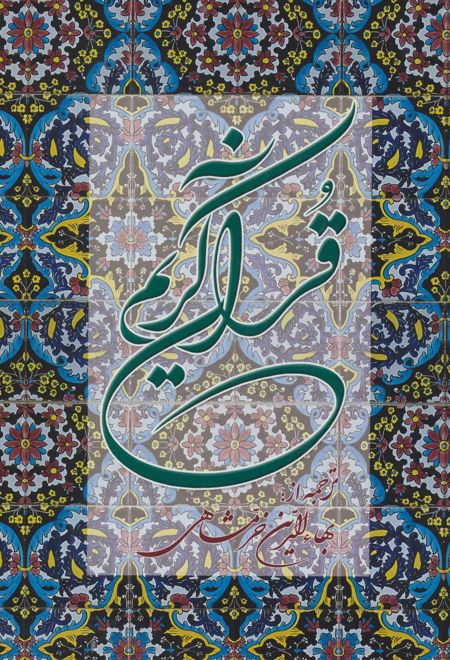 قرآن کریم
ترجمه از:
بهاءالدین خرمشاهی